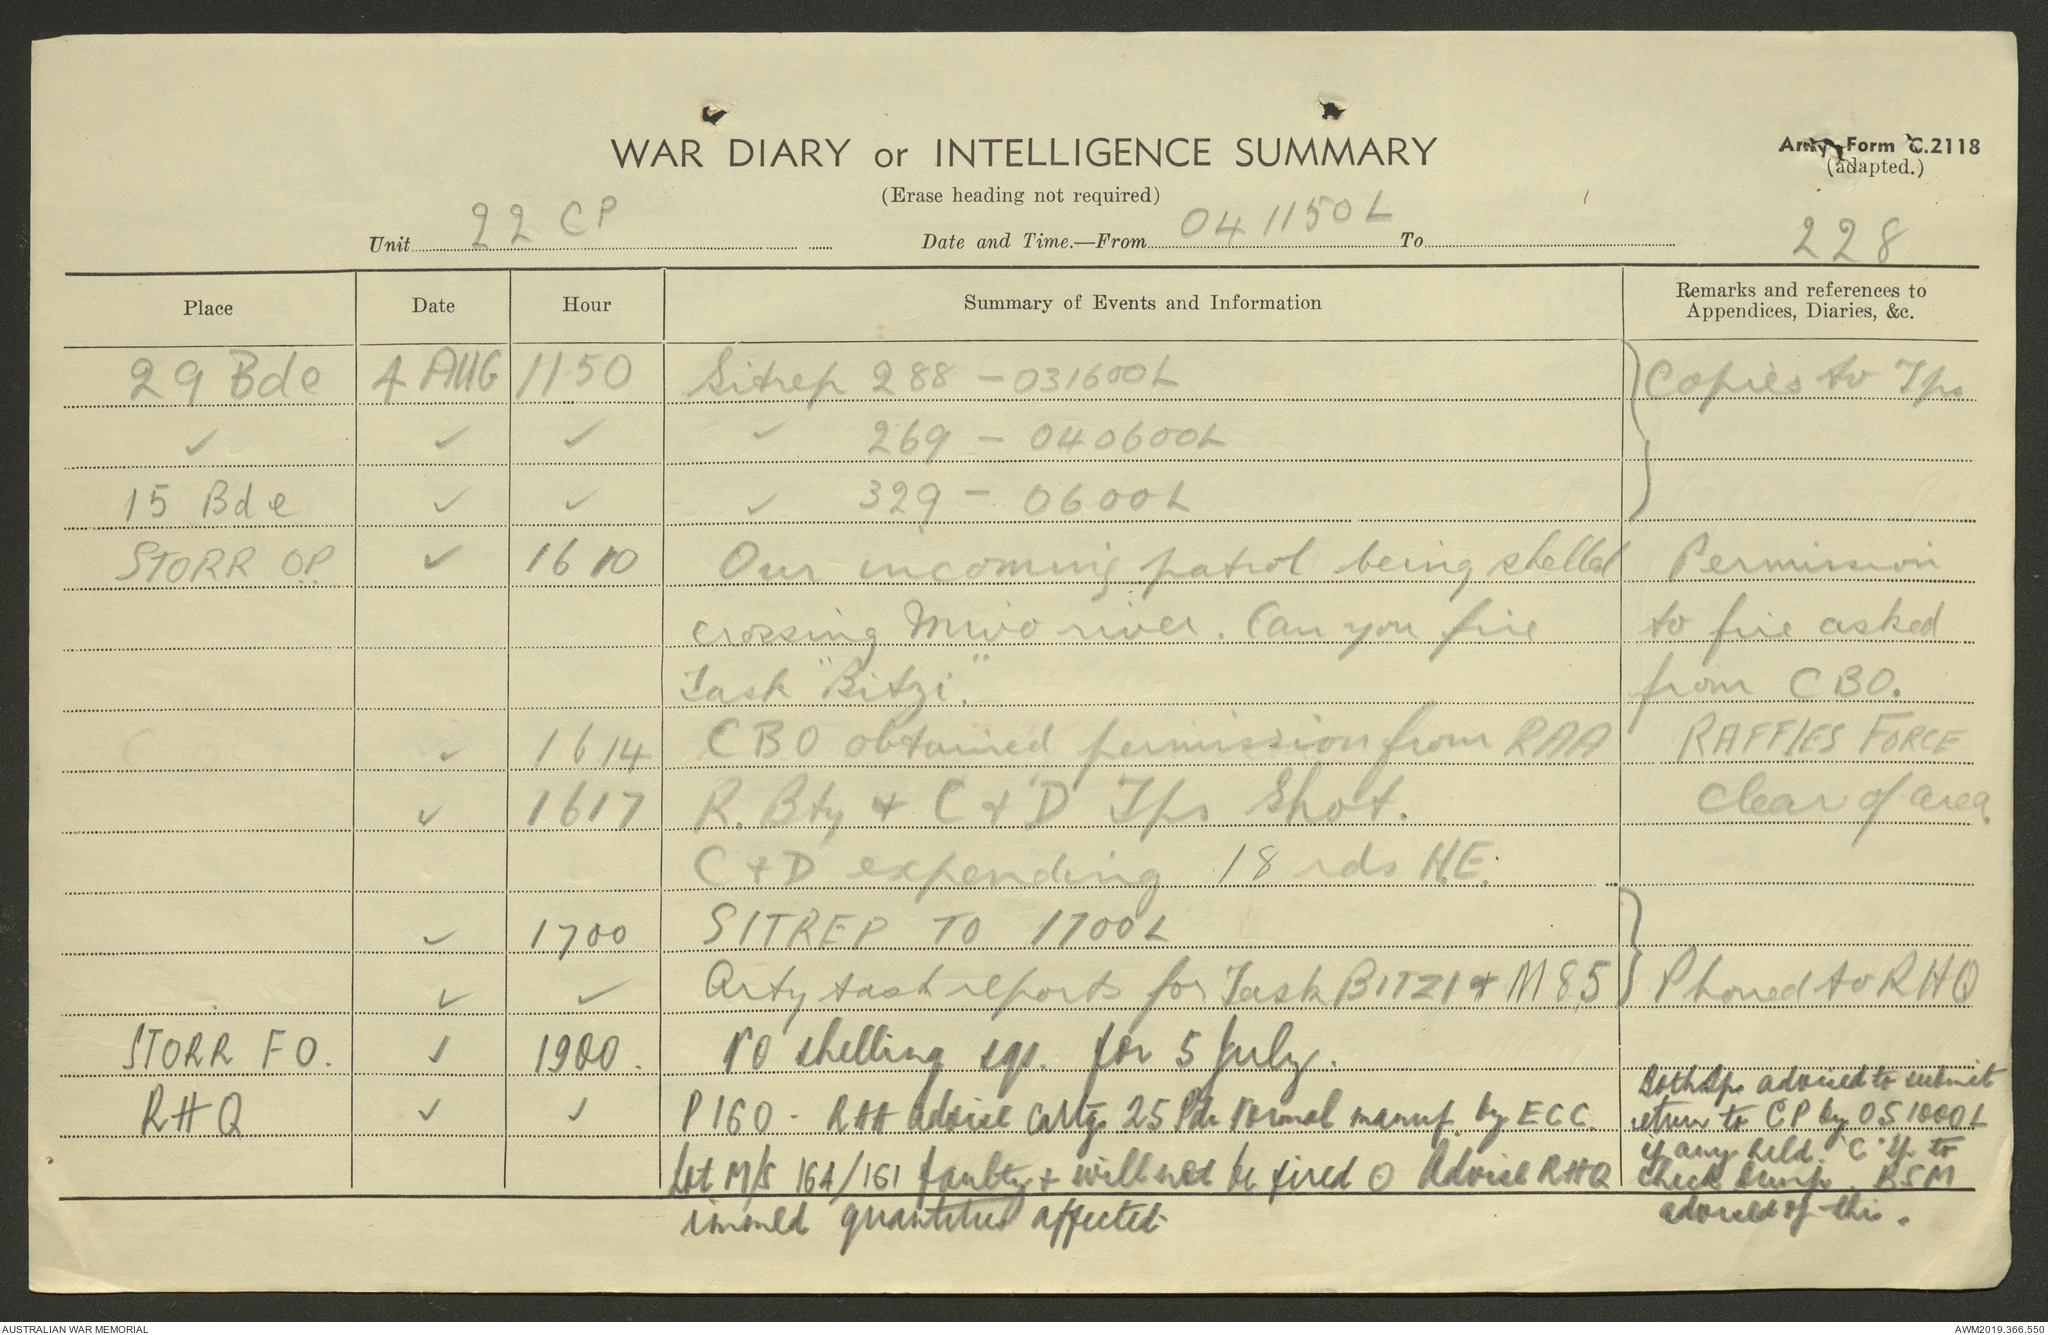 WAR DIARY or INTELLIGENCE SUMMARY
Army Form C.2118
(Erase heading not required)
(adapted.)
Unit 22 CP Date and Time.—From 041150L To
228
Place Date Hour Summary of Events and Information Remarks and references to Appendices, Diaries, &c.
29 Bde 4 AUG 1150 Sitrep 288 - 031600L Copies to Tps
✓ ✓ ✓ ✓ 269 - 040600L
15 Bde ✓ ✓ ✓ 329 - 0600L
STORR OP ✓ 1610 Our incoming patrol being shelled Permission
crossing Mivo river. Can you fire to fire asked
Task "Bitzi." from CBO.
✓ 1614 CBO obtained permission from RAA RAFFLES FORCE
✓ 1617 R. Bty + C + D Tps Shot. clear of area.
C + D expending 18 rds H.E.
✓ 1700 SITREP TO 1700L
✓ ✓ Arty task reports for Task BITZI + M85 Phoned to RHQ
STORR FO. ✓ 1900. no shelling sqs. for 5 July.
RHQ ✓ ✓ P160 - RAA advise Cartgs 25 Pdr Normal manuf. by ECC. Both tps advised to submit
return to CP by 051000L
Lot M/S 164/161 faulty + will not be fired O Advise RHQ if any held. "C" Tp to
check dump. BSM
immed quantities affected advised of this.
AUSTRALIAN WAR MEMORIAL
AWM2019.366.550